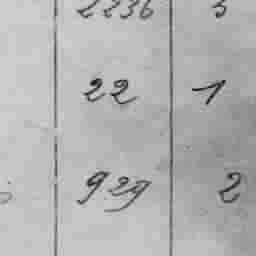 2236 5
22 1
929 2